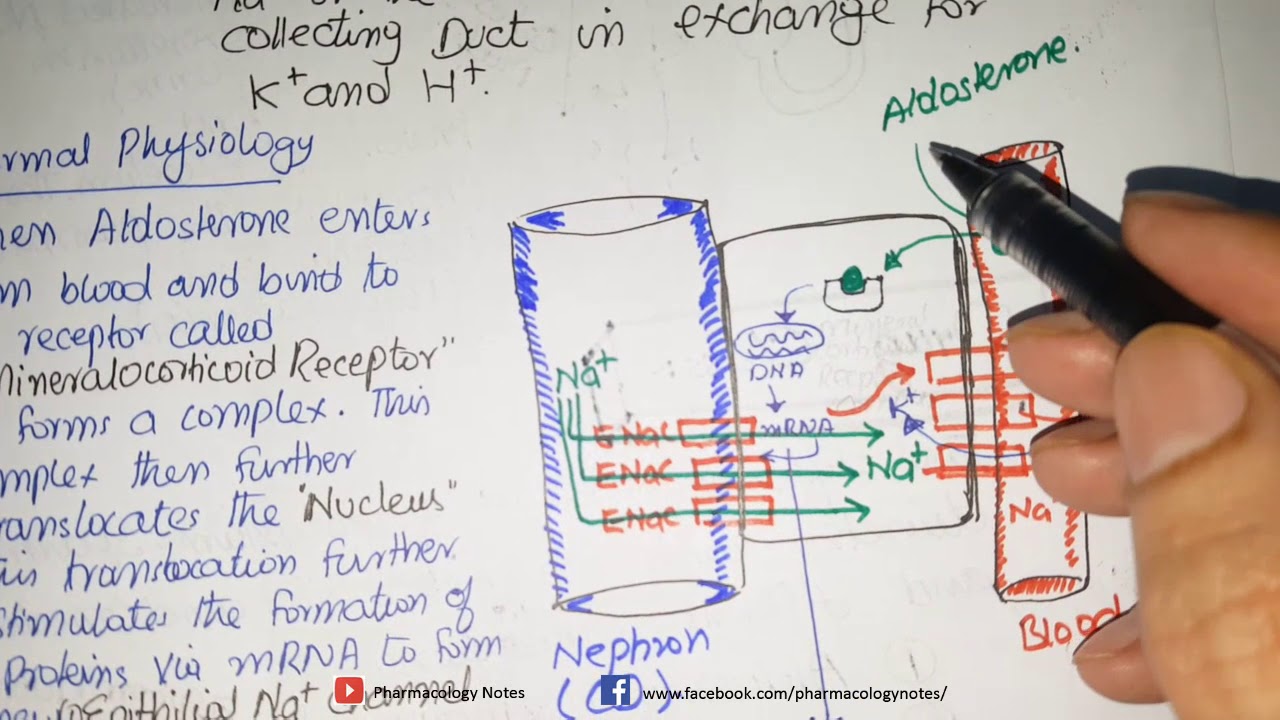 collecting Duct in exchange for
K+ and H+.
Physiology
Aldosterone enters
blood and bind to
receptor called
Mineralocorticoid Receptor"
forms a complex. This
then further
the "Nucleus"
translocation further
stimulates the formation of
Proteins via mRNA to form
Na+ Channel
Aldosterone.
DNA
mRNA
Na+
ENaC
ENaC
ENaC
K+
Na+
Na
Nephron
(CD)
Blood
Pharmacology Notes
www.facebook.com/pharmacologynotes/